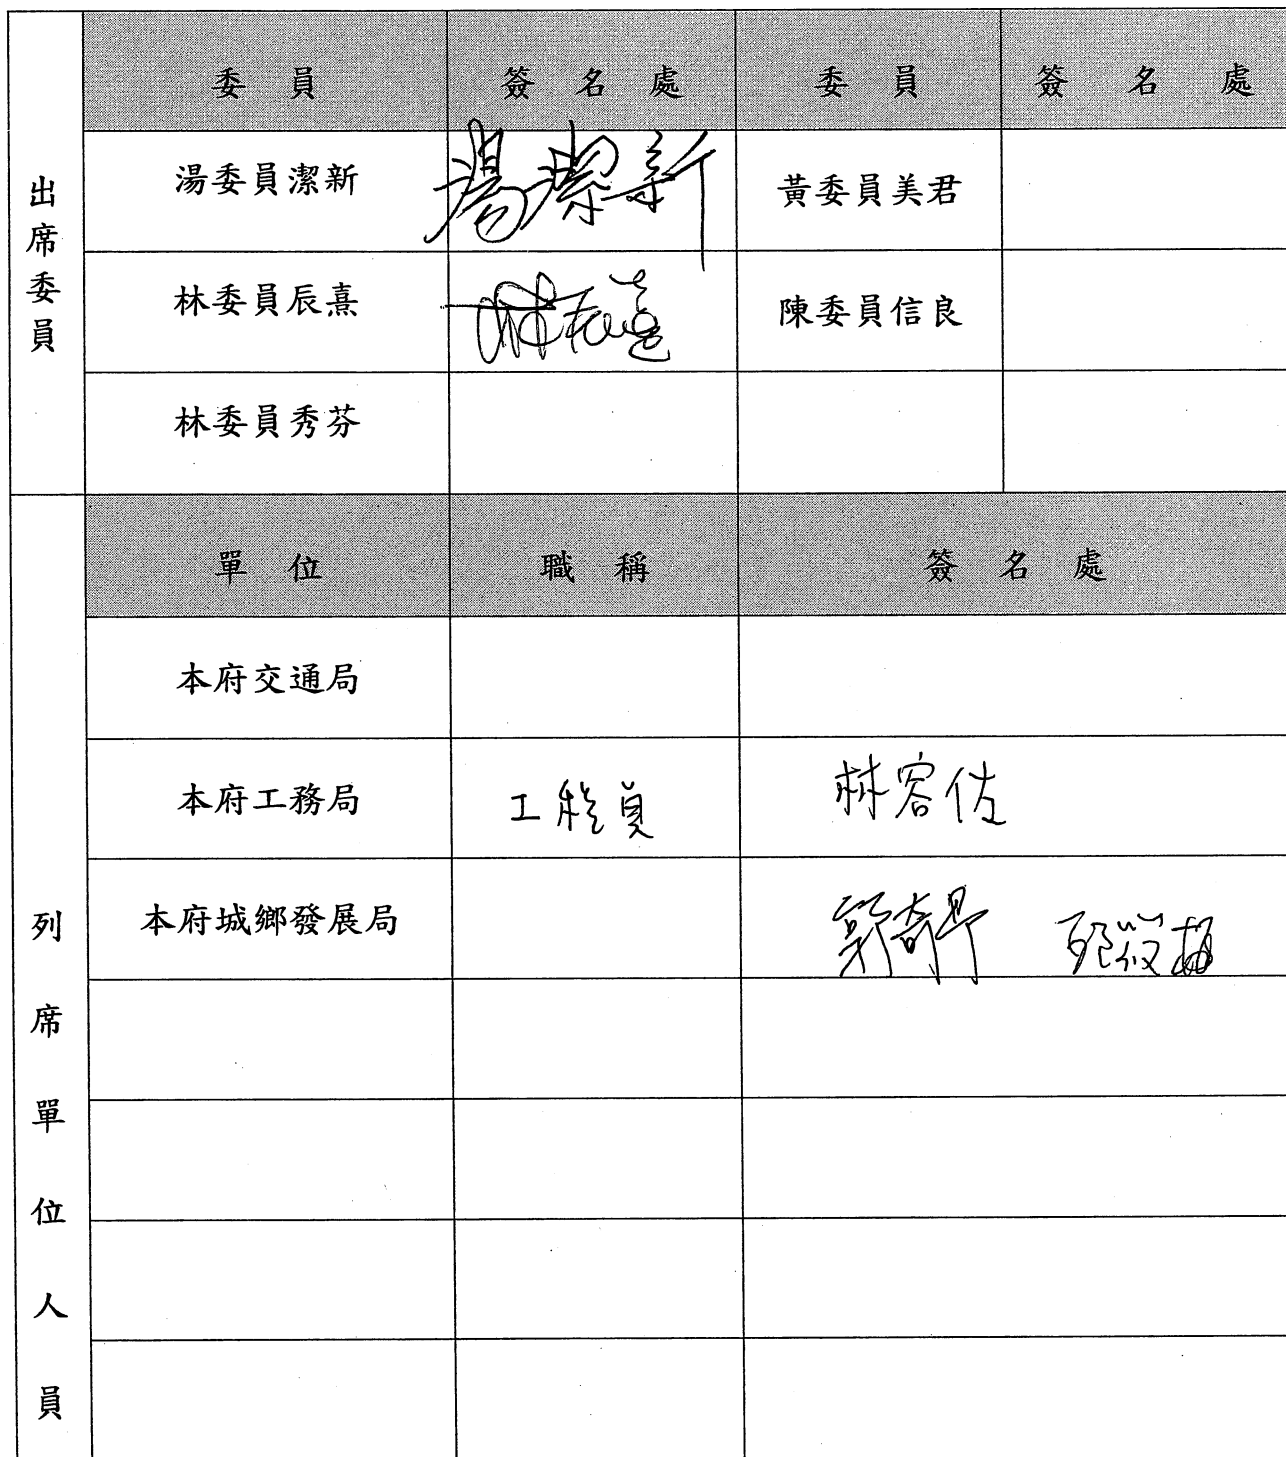 出席委員
委員 簽名處 委員 簽名處
湯委員潔新 湯潔新 黃委員美君
林委員辰熹 林辰熹 陳委員信良
林委員秀芬
列席單位人員
單位 職稱 簽名處
本府交通局
本府工務局 工程員 林容佐
本府城鄉發展局